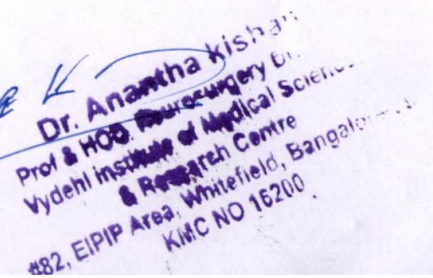 Dr. Anantha Kishan
Prof & HOD Neurosurgery
Vydehi Institute of Medical Sciences
& Research Centre
#82, EPIP Area, Whitefield, Bangalore
KMC NO 16200